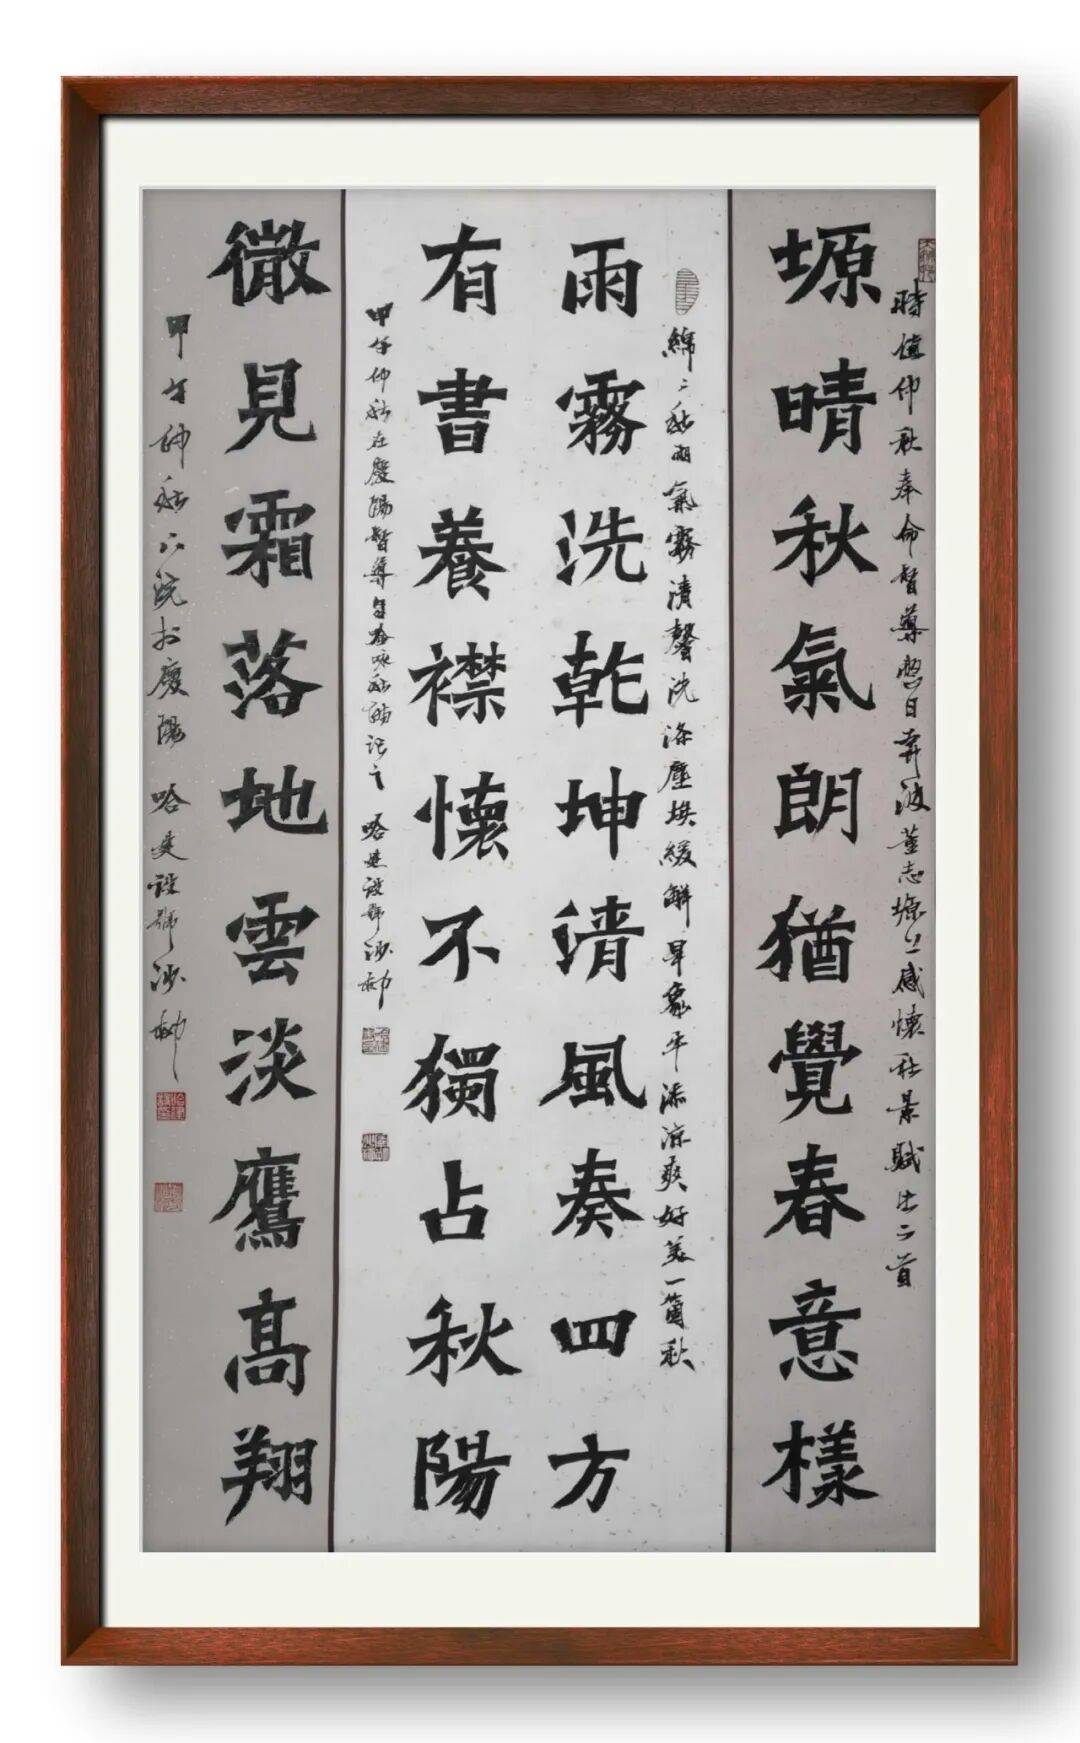 時值仲秋奉命督導整日奔波董志塬上感懷秋景賦此二首
塬晴秋氣朗猶覺春意樣
綿綿秋雨氣霧清馨洗滌塵埃緩解旱象平添涼爽好美一箇秋
雨霧洗乾坤清風奏四方
有書養襟懷不獨占秋陽
甲午仲秋在慶陽督導自詠秋韻記之 哈建設號沙柳
微見霜落地雲淡鷹高翔
甲午仲秋下浣於慶陽 哈建設號沙柳